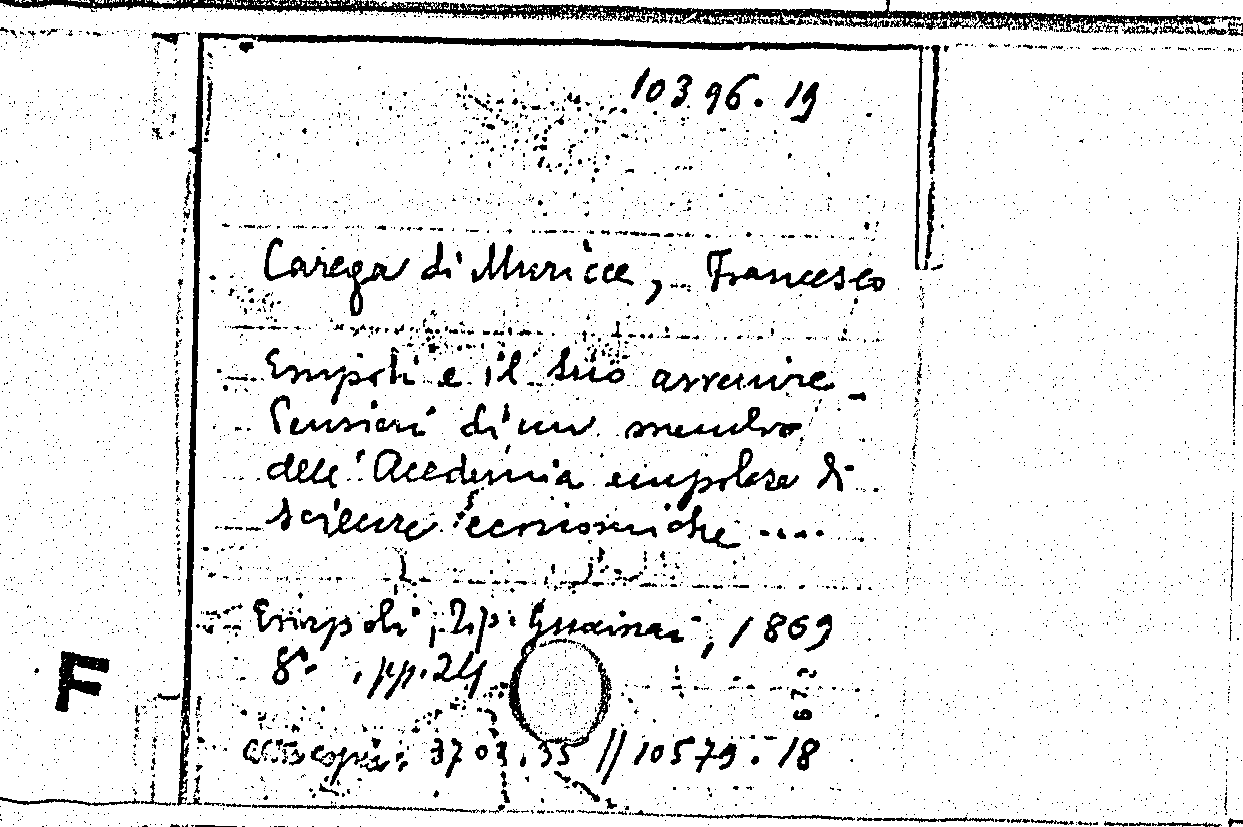 10396.19
Carega di Muricce, Francesco
Empoli e il suo avvenire -
Pensieri di un membro
dell'Accademia empolese di
scienze economiche ....
Empoli, Tip. Guainai, 1869
8° . pp. 24
672
altra copia: 3703.35 // 10579.18
F